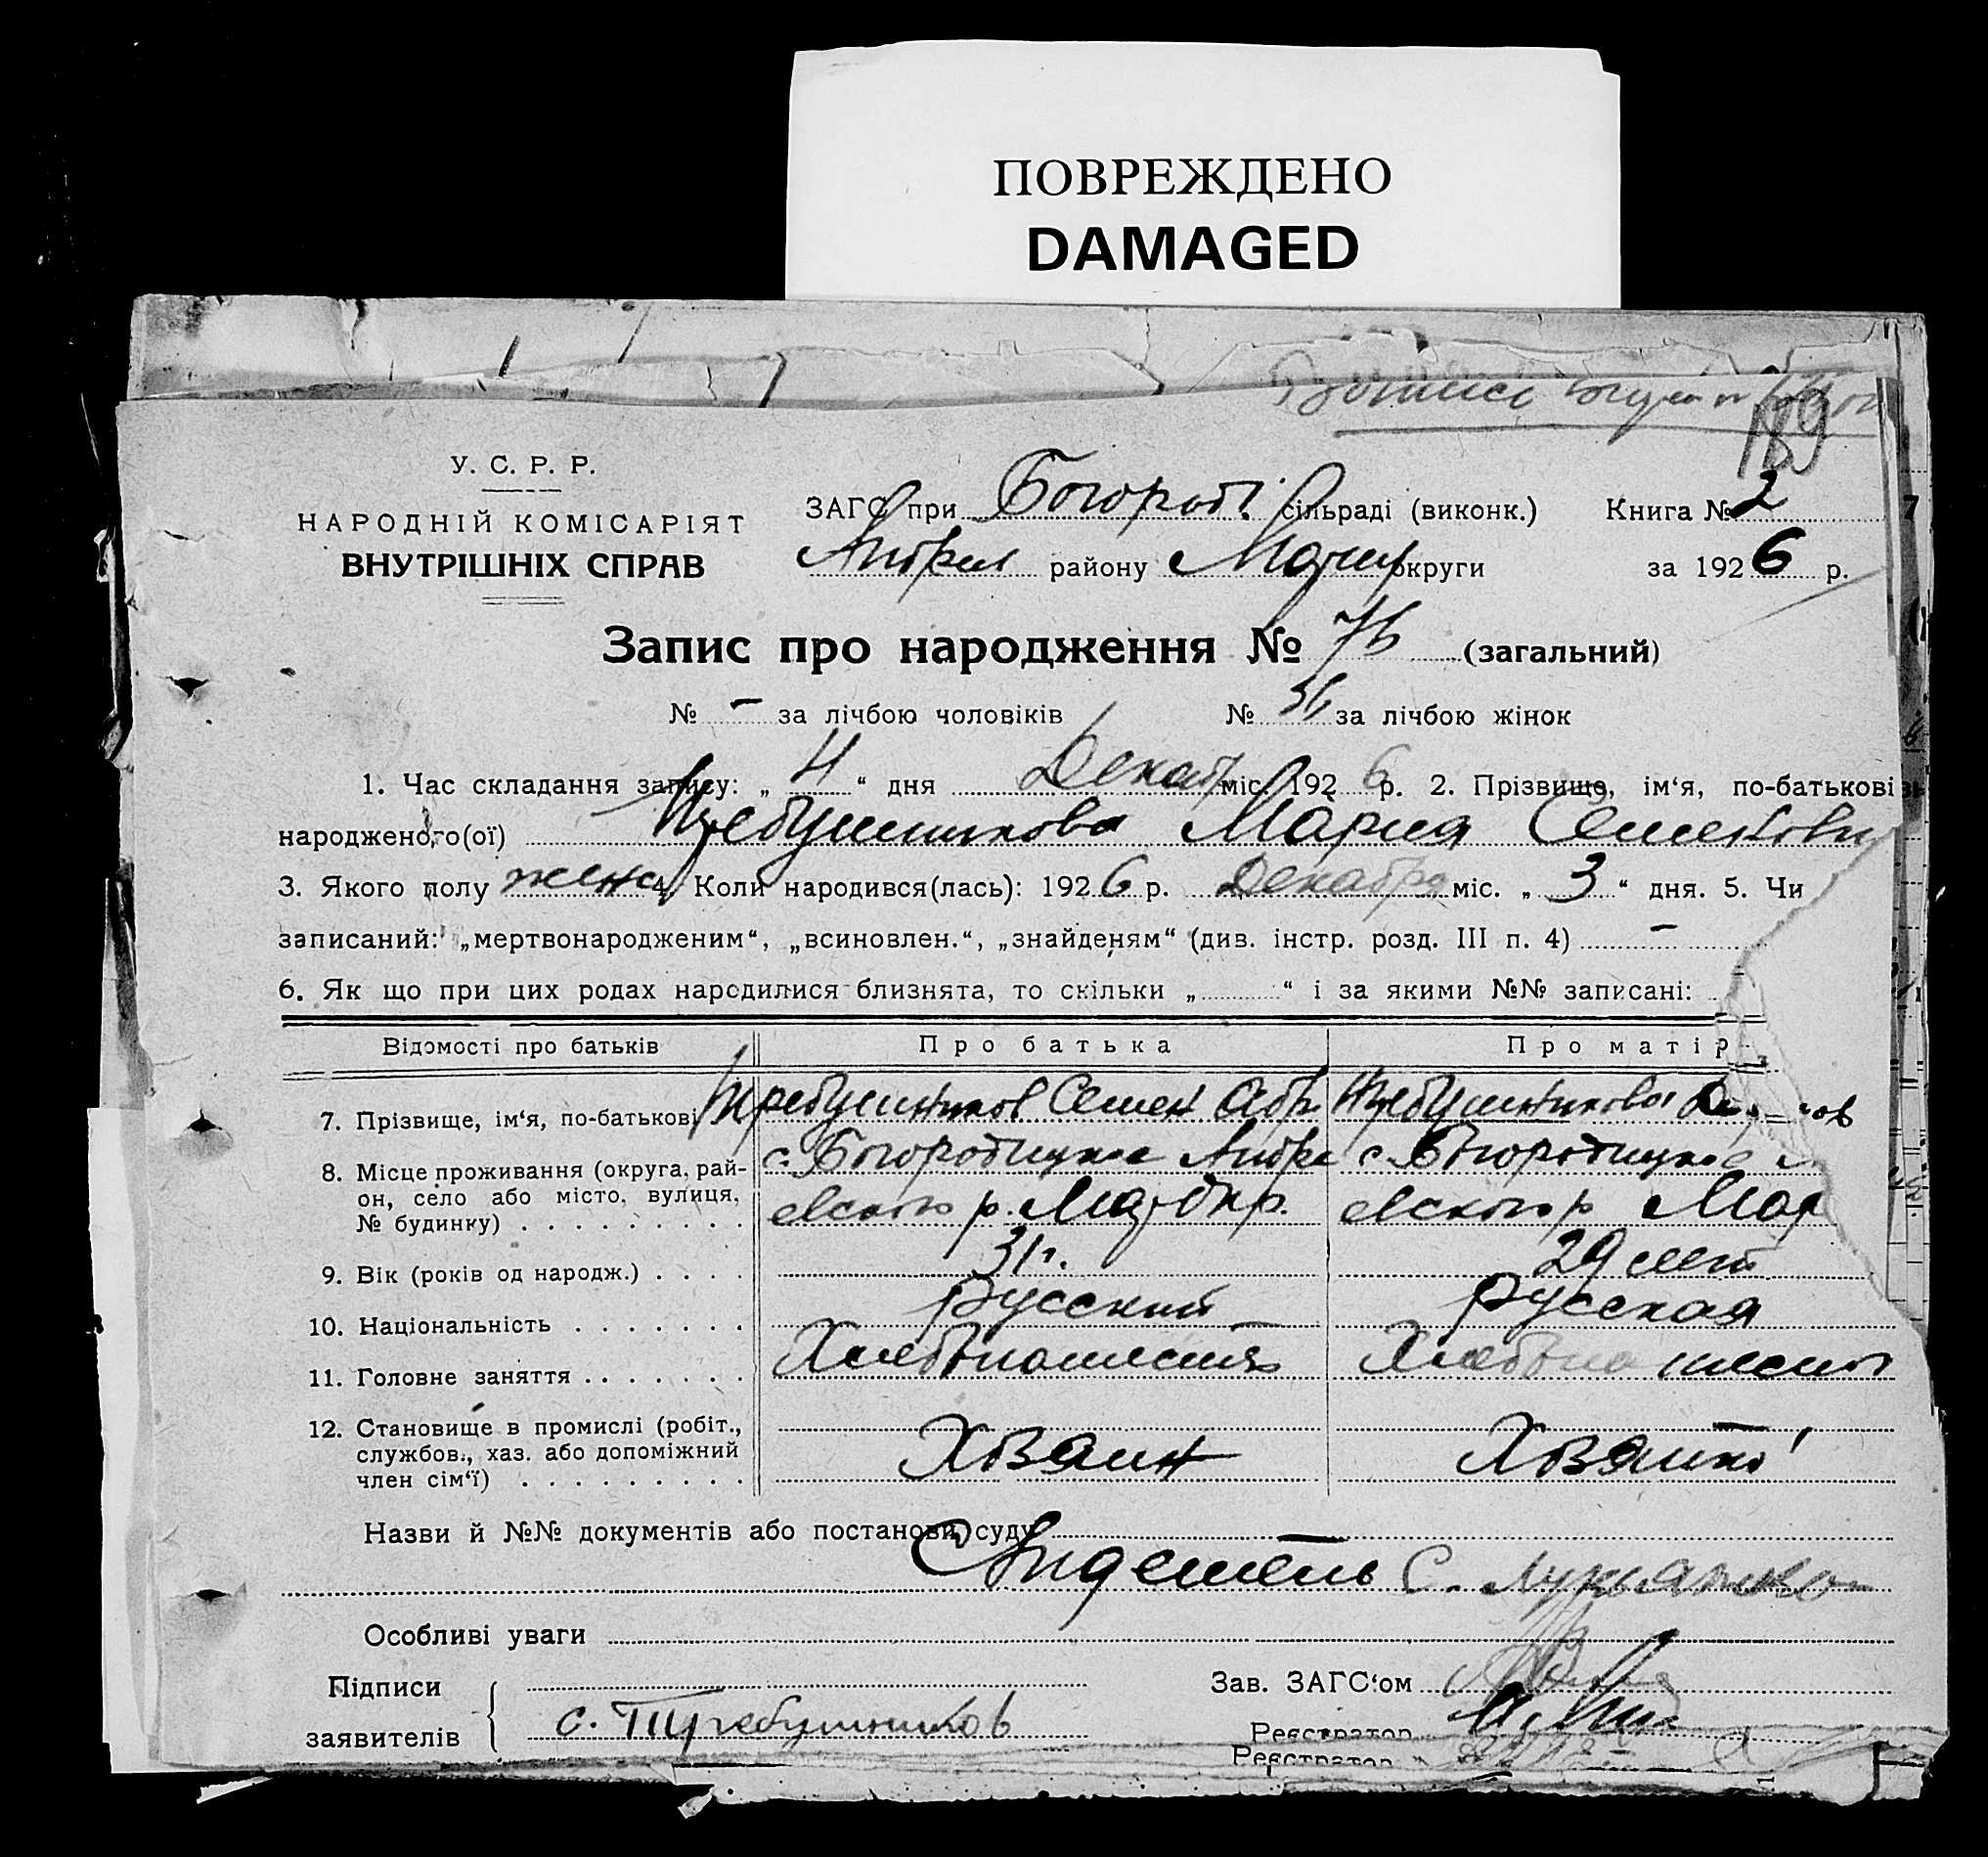 ПОВРЕЖДЕНО
DAMAGED
119
У. С. Р. Р.
НАРОДНІЙ КОМІСАРІЯТ
ВНУТРІШНІХ СПРАВ
ЗАГС при Богород. сільраді (виконк.) Книга № 2
району Мариуп округи за 1926 р.
Запис про народження № 76 (загальний)
№ - за лічбою чоловіків № 36 за лічбою жінок
1. Час складання запису: „ 4 “ дня Декабр міс. 1926 р. 2. Прізвище, ім‘я, по-батькові
народженого(ої) Требушникова Мария Семеновн
3. Якого полу женс 4. Коли народився(лась): 1926 р. Декабря міс. „ 3 “ дня. 5. Чи
записаний: „мертвонародженим“, „всиновлен.“, „знайденям“ (див. інстр. розд. III п. 4) -
6. Як що при цих родах народилися близнята, то скільки „ “ і за якими №№ записані:
Відомості про батьків Про батька Про матір
7. Прізвище, ім‘я, по-батькові Требушников Семен Абр Требушникова
8. Місце проживання (округа, рай-он, село або місто, вулиця, № будинку) с. Богородицкое Андре с. Богородицкое
евского р. Мар. окр. евского р Мар
9. Вік (років од народж.) 31 г. 29 лет
10. Національність Русский Русская
11. Головне заняття Хлебопашество Хлебопашест
12. Становище в промислі (робіт.,
службов., хаз. або допоміжний
член сім‘ї) Хозяин Хозяйка
Назви й №№ документів або постанови суду
Свидетель С. Лукьянов
Особливі уваги
Підписи
заявителів с. Требушников
Зав. ЗАГС‘ом
Реєстратор
Реєстратор